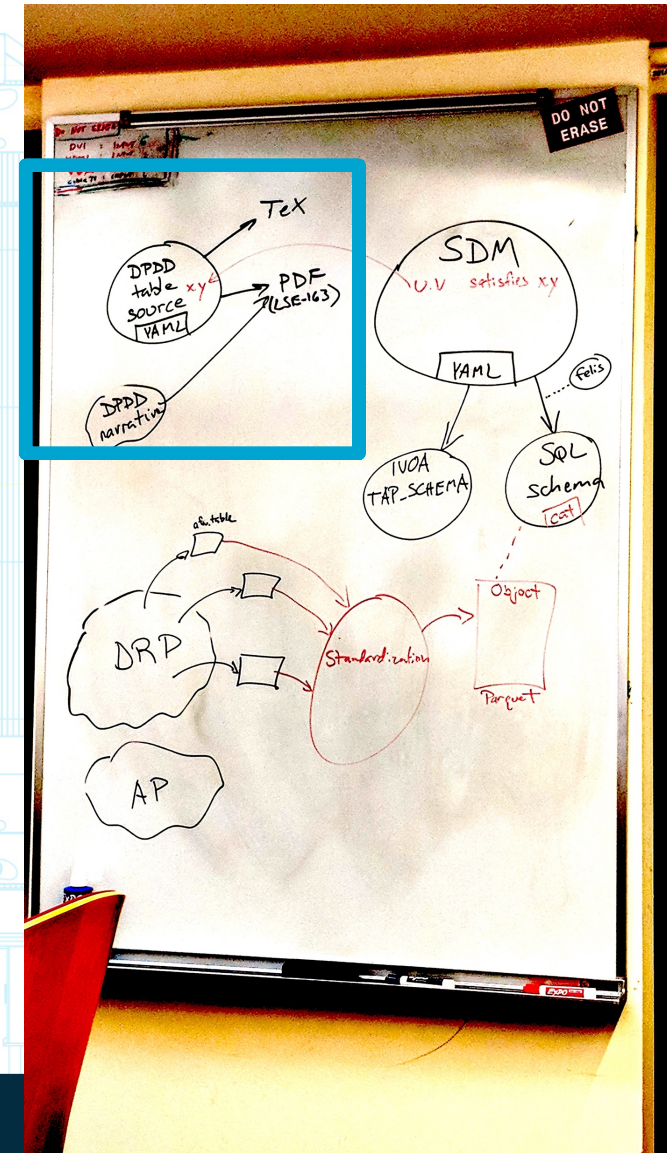 DO NOT
ERASE
DO NOT ERASE
DVI : INPUT
TeX
DPDD
table xy
source
YAML
PDF
(LSE-163)
DPDD
narrative
SDM
U.V satisfies xy
YAML
felis
IVOA
TAP_SCHEMA
SQL
schema
cat
afw.table
DRP
Standardization
Object
Parquet
AP
EXPO